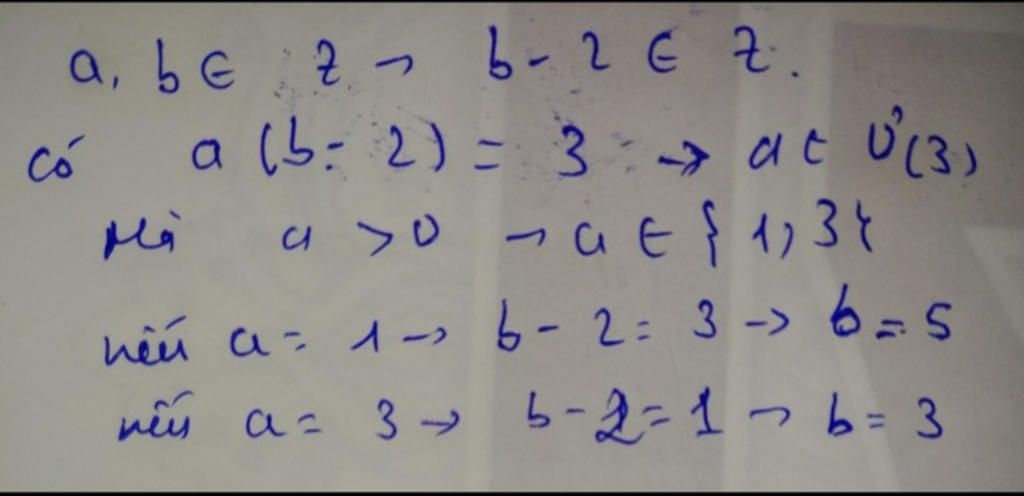 a, b ∈ Z → b - 2 ∈ Z.
có a (b - 2) = 3 → a ∈ Ư(3)
Mà a > 0 → a ∈ {1; 3}
nếu a = 1 → b - 2 = 3 → b = 5
nếu a = 3 → b - 2 = 1 → b = 3